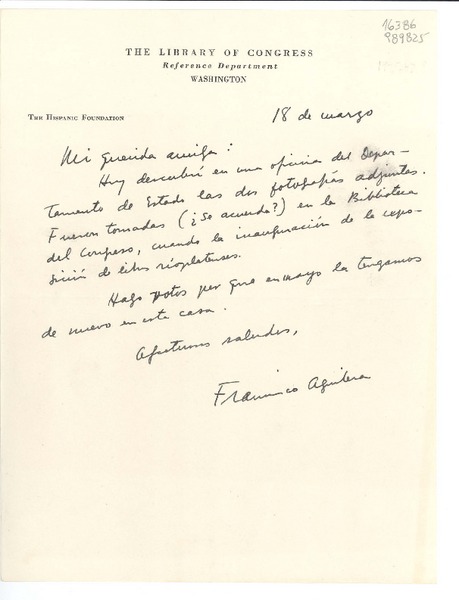 16386
989825
THE LIBRARY OF CONGRESS
Reference Department
WASHINGTON
THE HISPANIC FOUNDATION
18 de marzo
Mi querida amiga:
Hoy descubrí en una oficina del Depar-
tamento de Estado las dos fotografías adjuntas.
Fueron tomadas (¿Se acuerda?) en la Biblioteca
del Congreso, cuando la inauguración de la expo-
sición de libros rioplatenses.
Hago votos por que en mayo la tengamos
de nuevo en esta casa.
Afectuosos saludos,
Francisco Aguilera